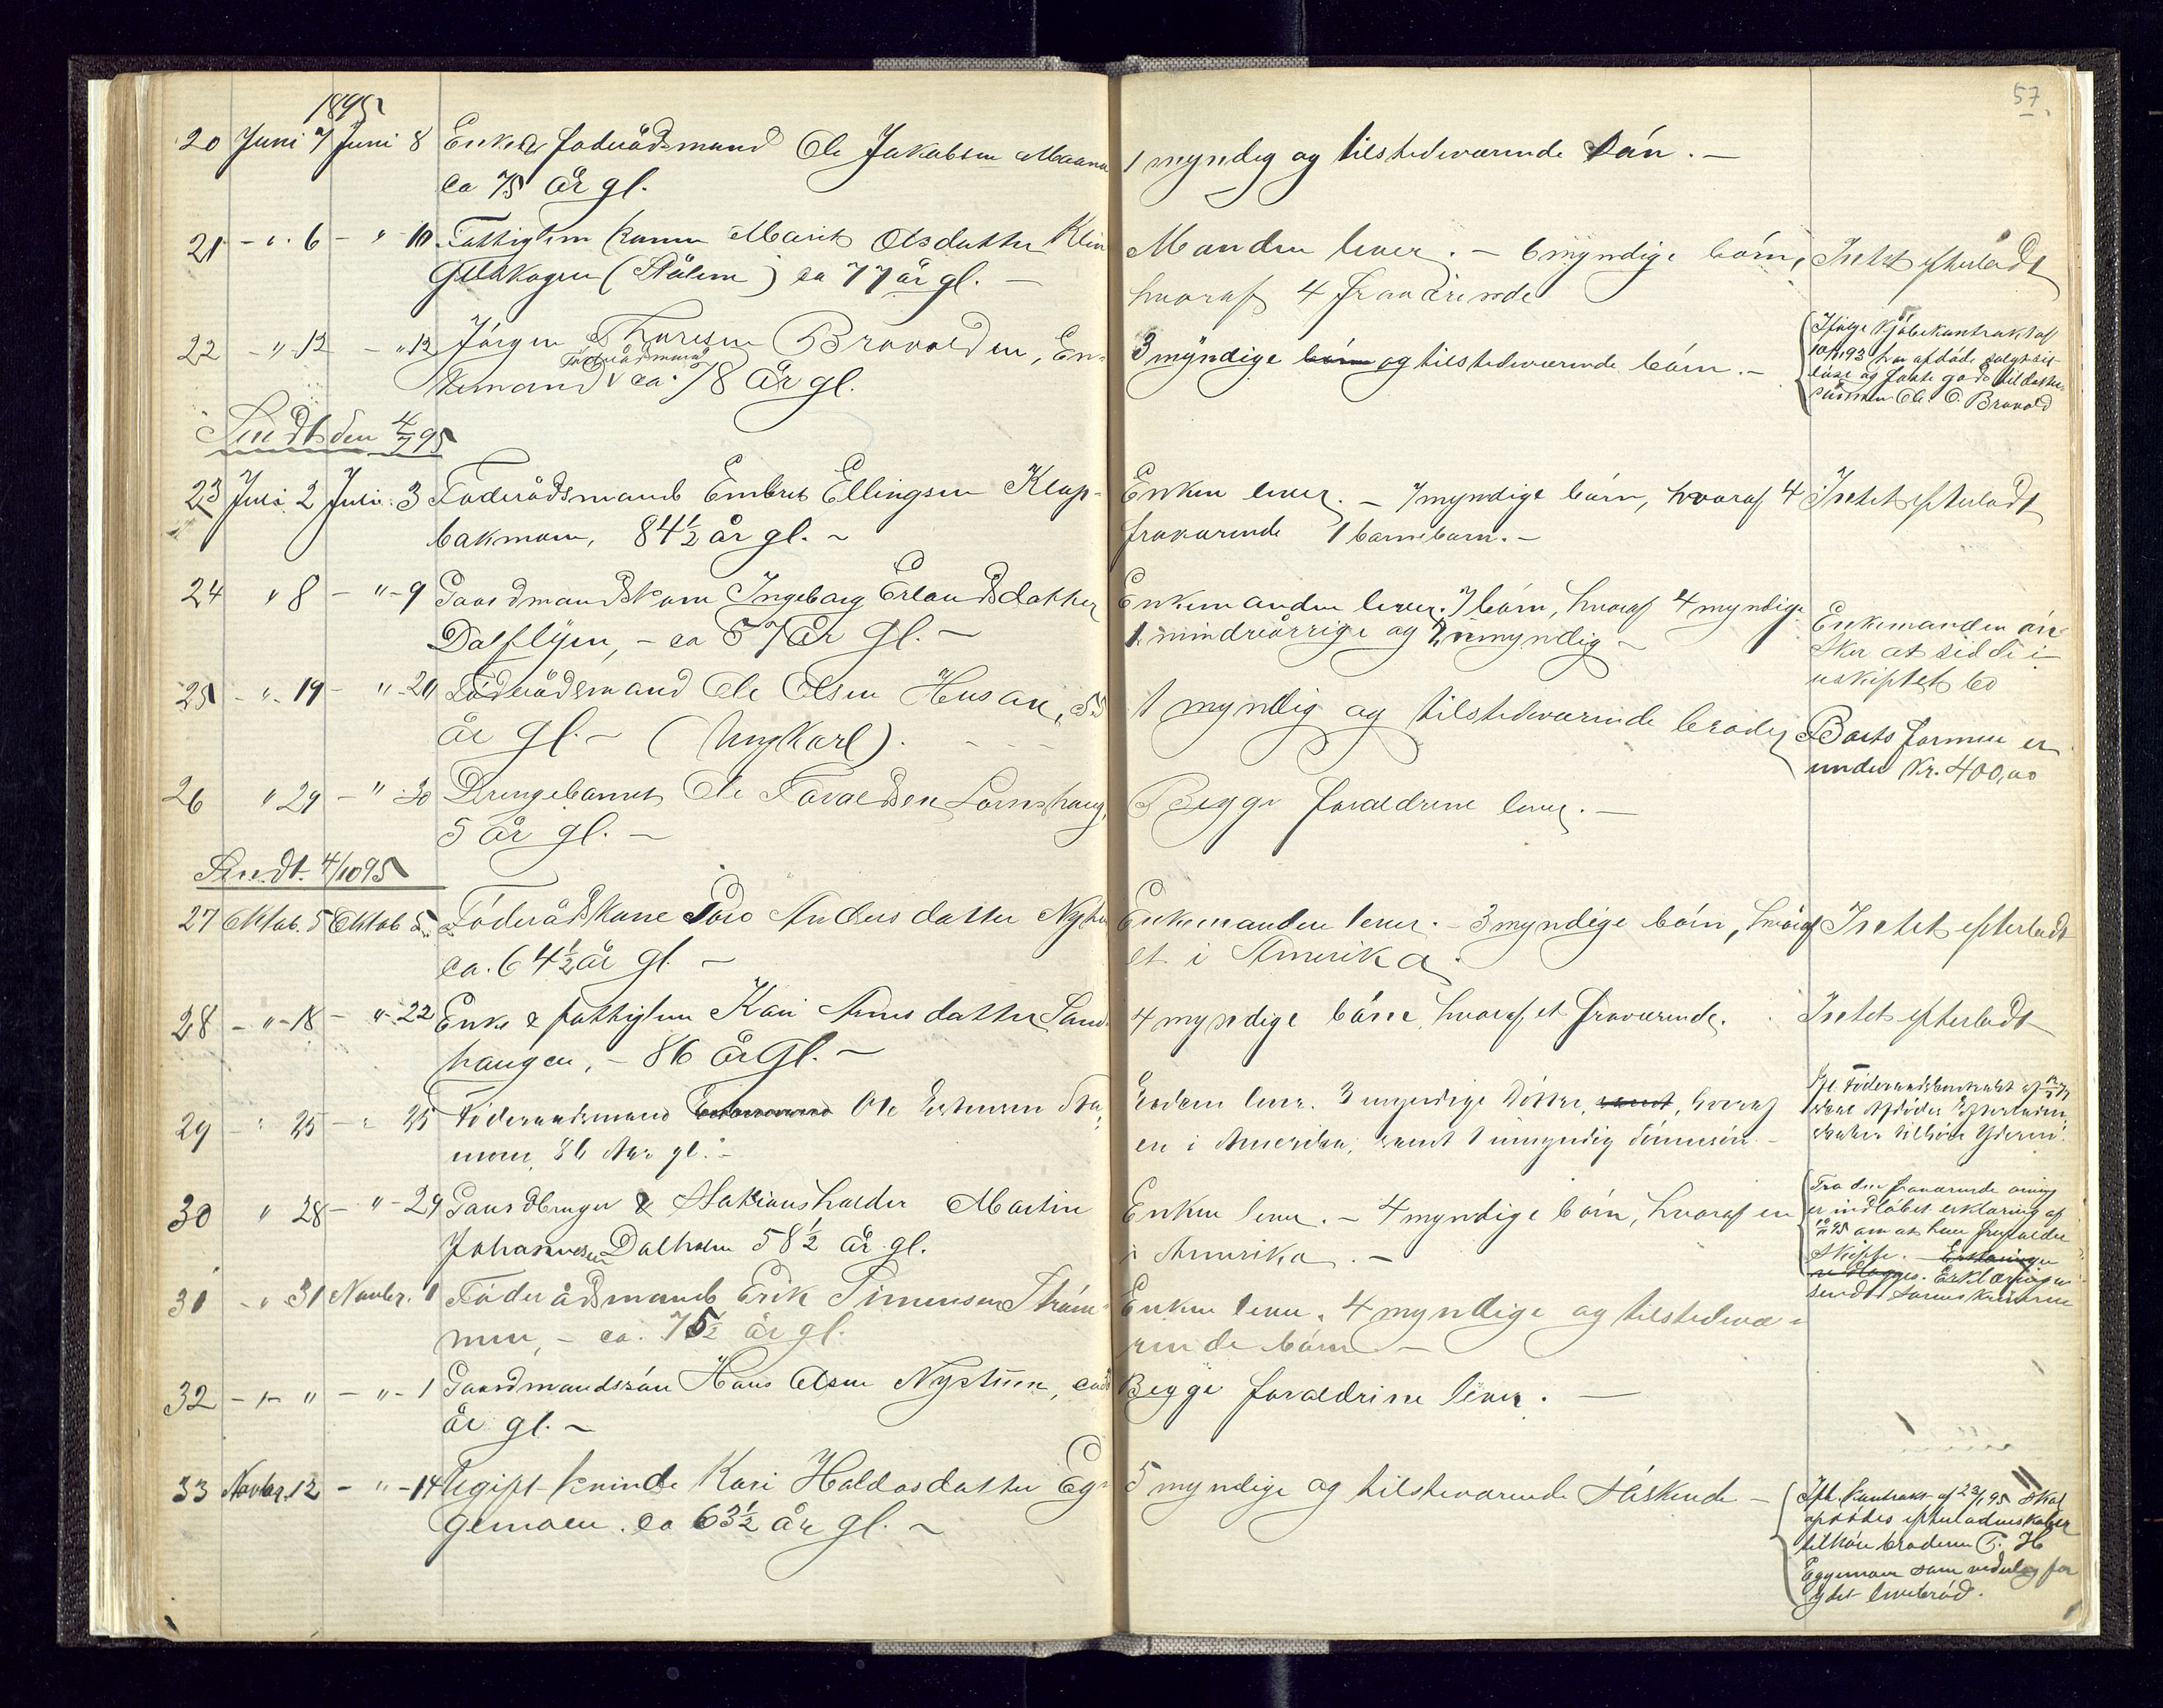 57.
1895
20 Juni 7 Juni 8 Enkem. Föderådsmand Ole Jakobsen Maana
ca 75 år gl.
1 myndig og tilstedeværende sön. –
21 – " 6 – " 10 Fattiglem kone Marit Olsdatter Klin
getskogen (Stålene) ca 77 år gl. –
Manden lever. – 6 myndige börn,
hvoraf 4 fraværende
Intet efterladt
22 – " 12 – " 12 Jörgen Thoresen Brovolden, En-
kemand Föderådsmand ca. 78 år gl.
3 myndige börn og tilstedeværende börn. –
Ifölge Kjöbekontrakt af
10/1 93 har afdöde solgt sit
löse og faste gods til datter-
sönnen Ole O. Brovold
Sendt den 4/7 95
23 Juli 2 Juli 3 Föderådsmand Embret Ellingsen Klop-
bakmoen, 84½ år gl. –
Enken lever. – 7 myndige börn, hvoraf 4
fraværende 1 barnebarn. –
Intet efterladt
24 " 8 – " 9 Gaardmandskone Ingeborg Erlandsdatter
Dalflyen, – ca 57 år gl. –
Enkemanden lever. 7 börn, hvoraf 4 myndige
1 mindreårrige og 2 umyndig –
Enkemanden ön-
sker at sidde i
uskiftet bo
25 – " 19 – " 20 Föderådsmand Ole Olsen Husan, 55
år gl. – (Ungkarl).
1 myndig og tilstedeværende broder
Boets formue er
under Kr. 400,00
26 " 29 – " 30 Drengebarnet Ole Tovaldsen Lornshaug,
5 år gl. –
Begge forældrene lever. –
Sendt. 4/10 95
27 Oktob. 5 Oktob 5 Föderådskone Goro Andersdatter
ca. 64½ år gl. –
Enkemanden lever. – 3 myndige börn, hvoraf
et i Amerika.
Intet efterladt
28 – " 18 – " 22 Enke & fattiglem Kari Arnesdatter Sand
haugen, – 86 år gl. –
4 myndige börn, hvoraf et fraværende.
Intet efterladt
29 – " 25 – " 25 Föderaadsmand Ole Estensen
moen, 86 Aar gl. –
Enken lever. 3 myndige Döttre, samt, hvoraf
en i Amerika, samt 1 umyndig Sönnesön. –
Ifl. Föderaadskontrakt af
skal Afdödes Efterladen-
skaber tilhöre Yderen.
30 " 28 – " 29 Gaardbruger & Stationsholder Martin
Johannesen Dalholm 58½ år gl.
Enken lever. – 4 myndige börn, hvoraf en
i Amerika. –
Fra den fraværende arving
er indlöbet erklæring af
95 om at han
Skifte. – Erklæringen
vedlægges. Erklæringen
sendt Sorenskriveren
31 " 31 Novbr. 1 Föderådsmand Erik Simensen Ström-
men, – ca. 75½ år gl.
Enken lever. 4 myndige og tilstedevæ-
rende börn –
32 – " " – " 1 Gaardmandssön Hans Olsen Nystuen,
år gl. –
Begge forældrene lever. –
33 Novbr. 12 – " 14 Ugift kvinde Kari Haldosdatter Eg-
gemoen. ca 63½ år gl. –
5 myndige og tilsteværende söskende –
Ifl. Kontrakt af 23/1 95 skal
afdödes efterladenskaber
tilhöre broderen T. H.
Eggemoen som vederlag for
ydet levebröd.